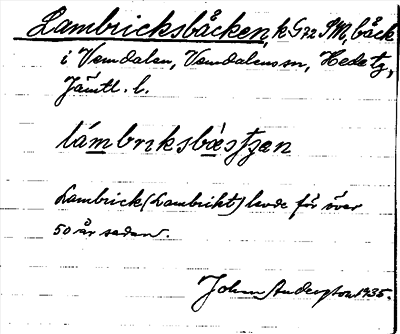 Lambricksbäcken, k G 22 SM, bäck
i Vemdalen, Vemdalens sn, Hede tg,
Jämtl. l.
lámbriksbæ̀stzen
Lambrick (Lambrikt) levde för över
50 år sedan.
Johan Andersson 1935.